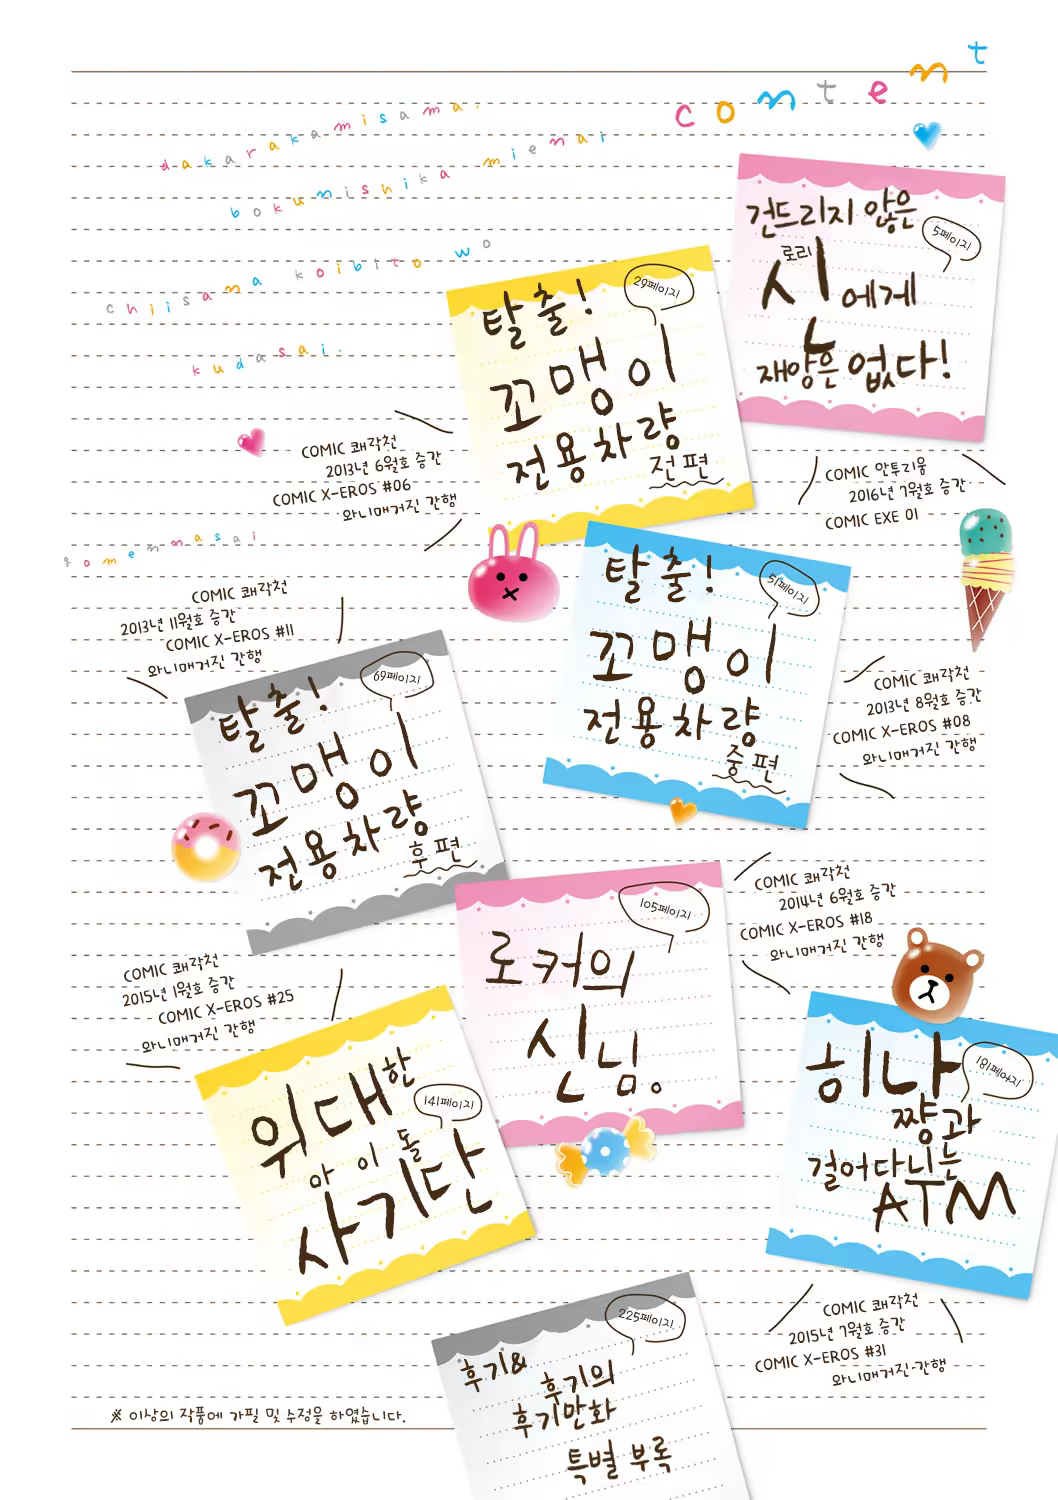 content
dakarakamisama.
bokunishika mienai
chiisana koibito wo
kudasai.
gomennasai
건드리지 않은
로리
신에게
재앙은 없다!
5페이지
COMIC 안투리움
2016년 7월호 증간
COMIC EXE 01
탈출!
꼬맹이
전용차량
전편
29페이지
COMIC 쾌락천
2013년 6월호 증간
COMIC X-EROS #06
와니매거진 간행
탈출!
꼬맹이
전용차량
중편
51페이지
COMIC 쾌락천
2013년 8월호 증간
COMIC X-EROS #08
와니매거진 간행
탈출!
꼬맹이
전용차량
후편
69페이지
COMIC 쾌락천
2013년 11월호 증간
COMIC X-EROS #11
와니매거진 간행
로커의
신님。
105페이지
COMIC 쾌락천
2014년 6월호 증간
COMIC X-EROS #18
와니매거진 간행
위대한
아이돌
사기단
141페이지
COMIC 쾌락천
2015년 1월호 증간
COMIC X-EROS #25
와니매거진 간행
히나
쨩과
걸어다니는
ATM
181페이지
COMIC 쾌락천
2015년 7월호 증간
COMIC X-EROS #31
와니매거진 간행
후기&
후기의
후기만화
특별 부록
225페이지
※ 이상의 작품에 가필 및 수정을 하였습니다.